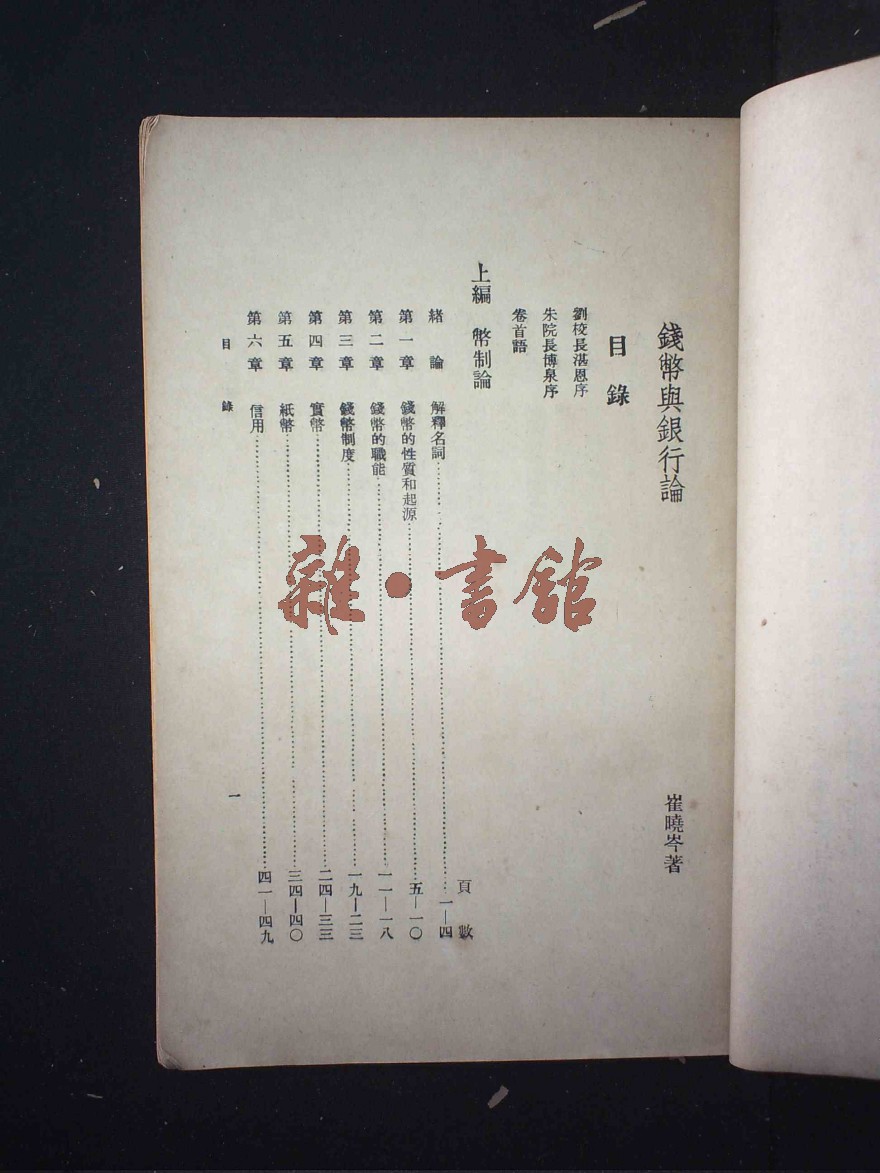 錢幣與銀行論
崔曉岑著
目錄
劉校長湛恩序
朱院長博泉序
卷首語
上編 幣制論
頁數
緒論 解釋名詞 一—四
第一章 錢幣的性質和起源 五—一〇
第二章 錢幣的職能 一一—一八
第三章 錢幣制度 一九—二三
第四章 實幣 二四—三三
第五章 紙幣 三四—四〇
第六章 信用 四一—四九
目錄
一
雜·書館